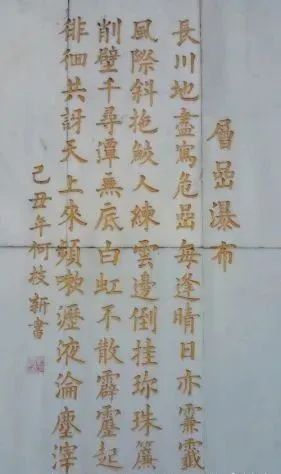 層嵒瀑布
長川地盡寫危嵒每逢晴日亦
風際斜拖鮫人練雲邊倒挂珎珠簾
削壁千尋潭無底白虹不散霹靂起
徘徊共訝天上來頻教瀝液淪塵滓
己丑年何枝新書